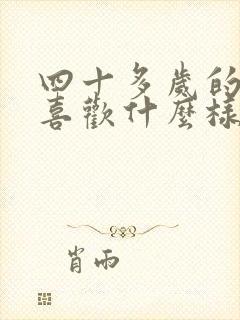 四十多歲的
喜歡什麼樣
肖雨